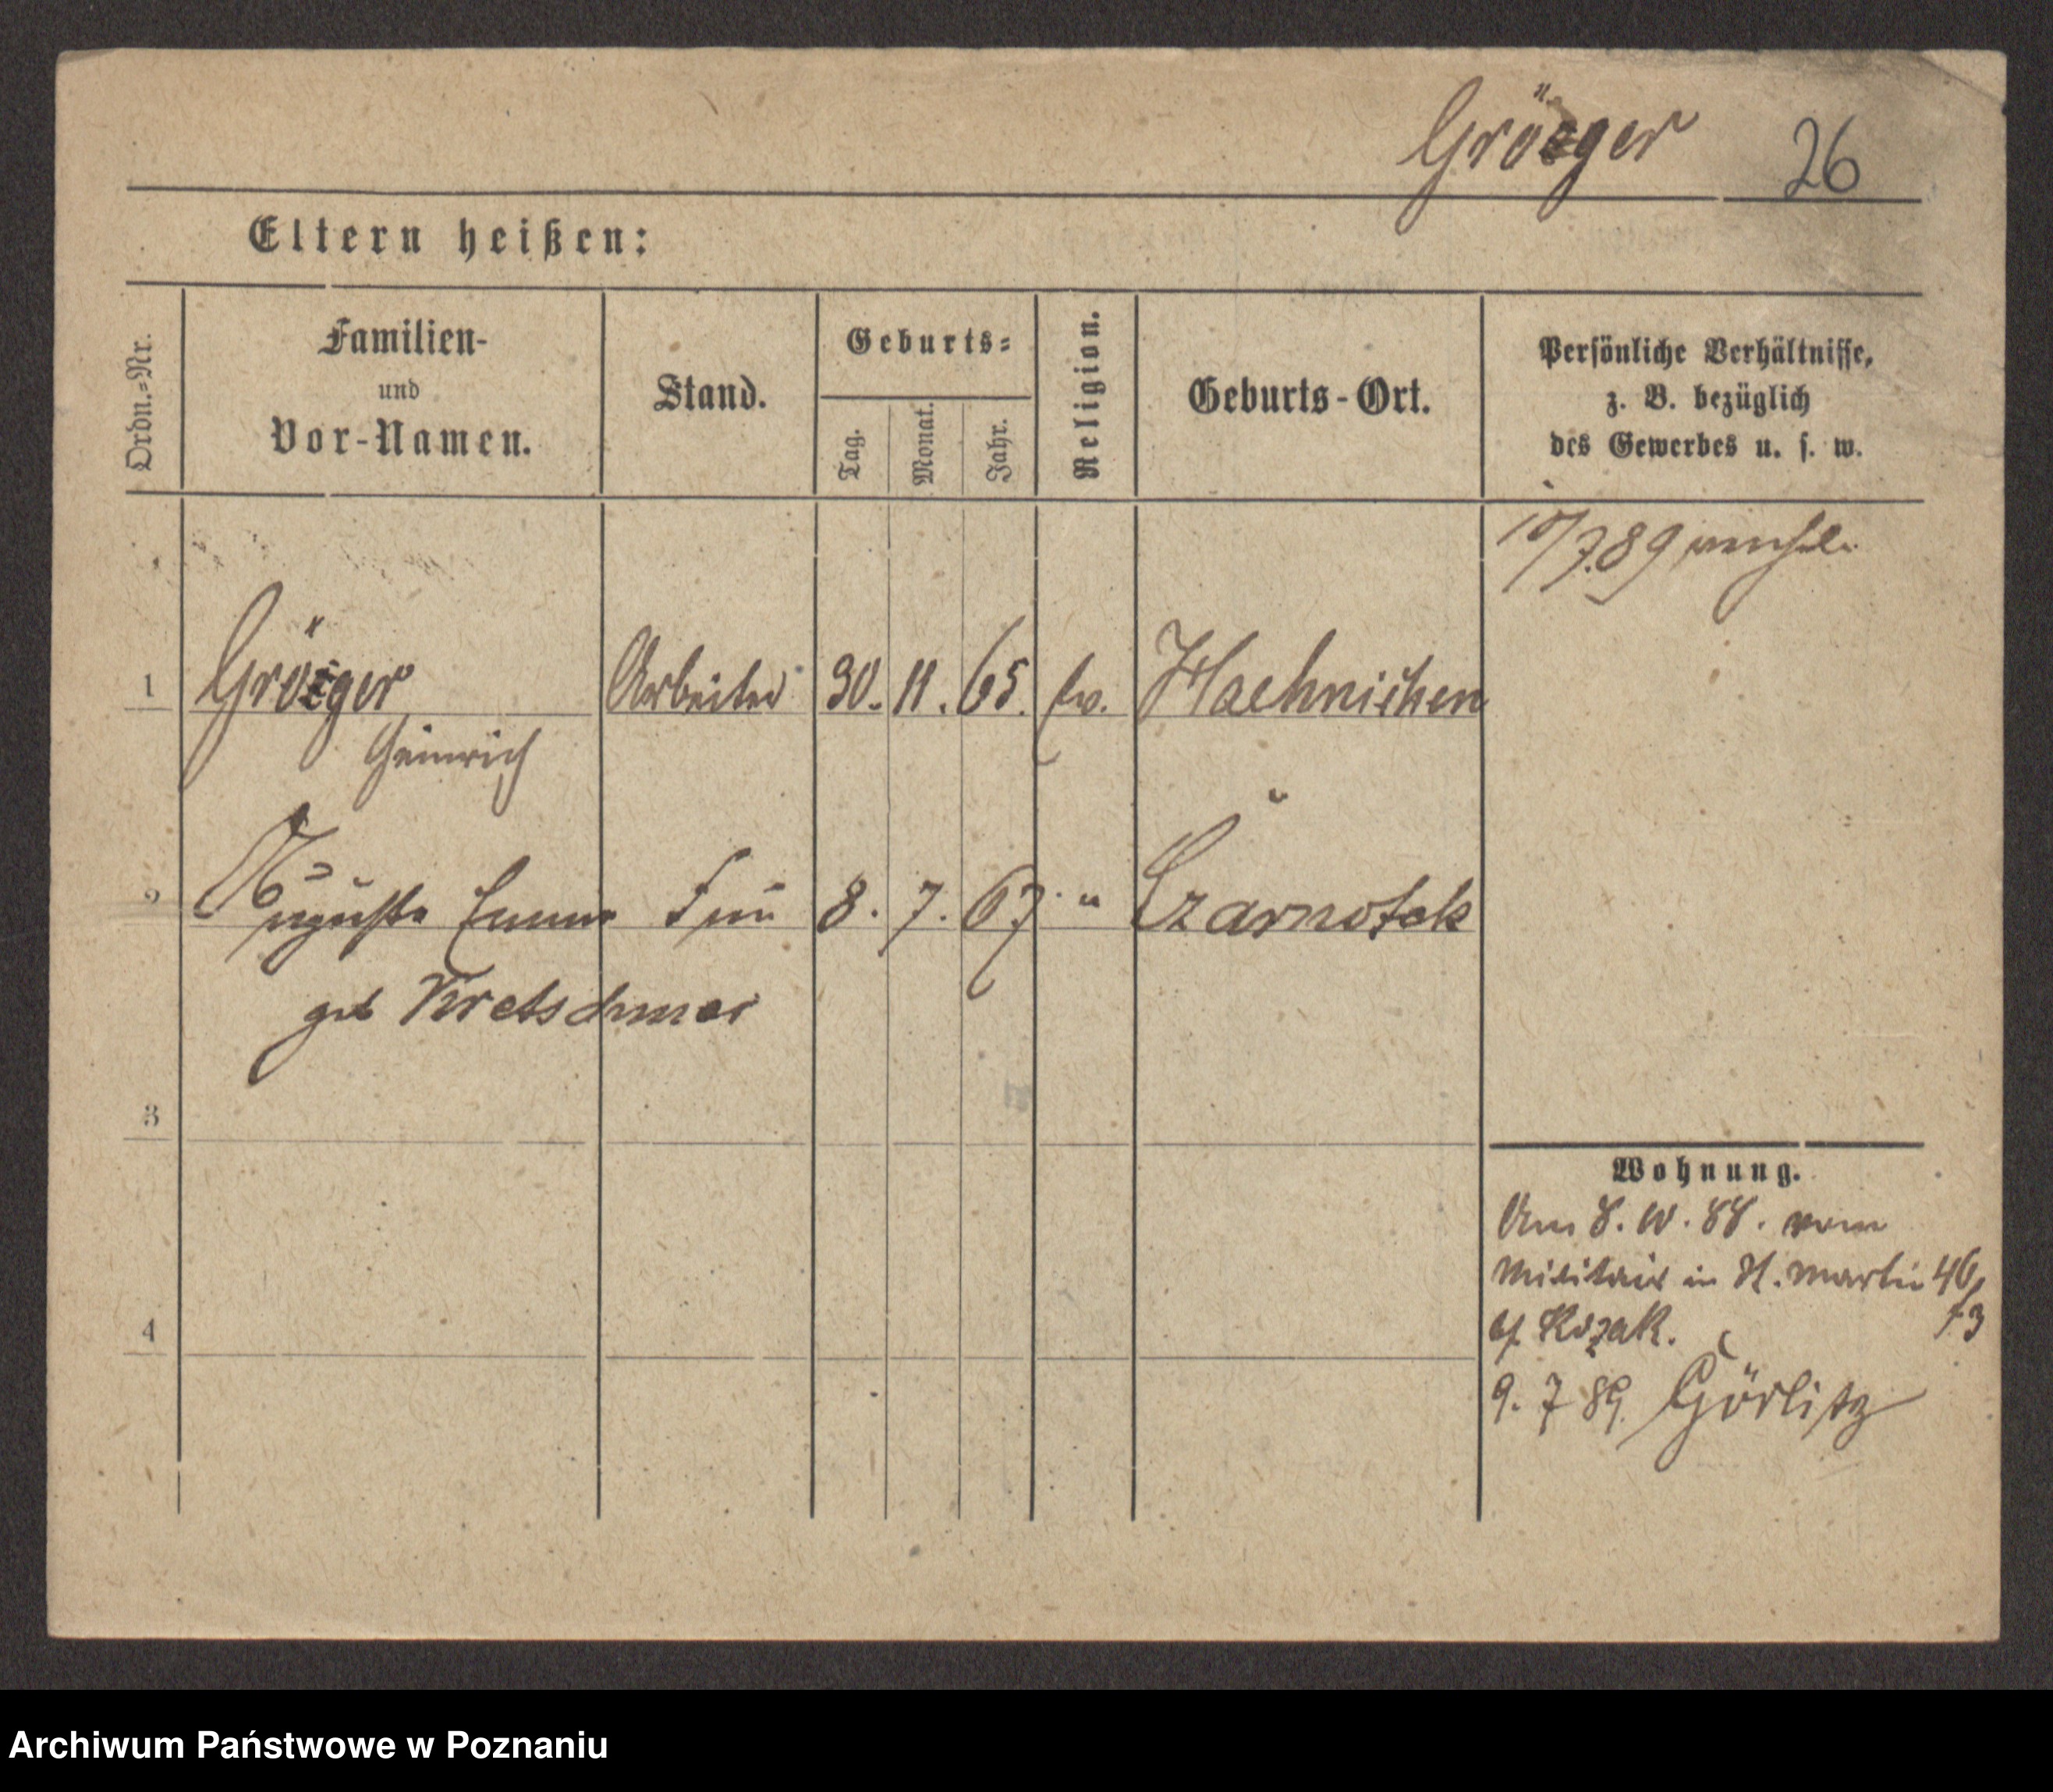 Gröger 26
Eltern heißen:
Ordn.=Nr.
Familien-
und
Vor-Namen.
Stand.
Geburts=
Tag.
Monat.
Jahr.
Religion.
Geburts-Ort.
Persönliche Verhältnisse,
z. B. bezüglich
des Gewerbes u. s. w.
10/7.89
1 Gröger Arbeiter 30. 11. 65. ev. Haehnichen
Heinrich
2 Auguste Emma Frau 8. 7. 67. " Czarnotek
geb Kretschmer
3
4
Wohnung.
Am 8. 10. 88. vom
Militair in St. Martin 46/
b/ Kozak. 73
9. 7 89. Görlitz
Archiwum Państwowe w Poznaniu